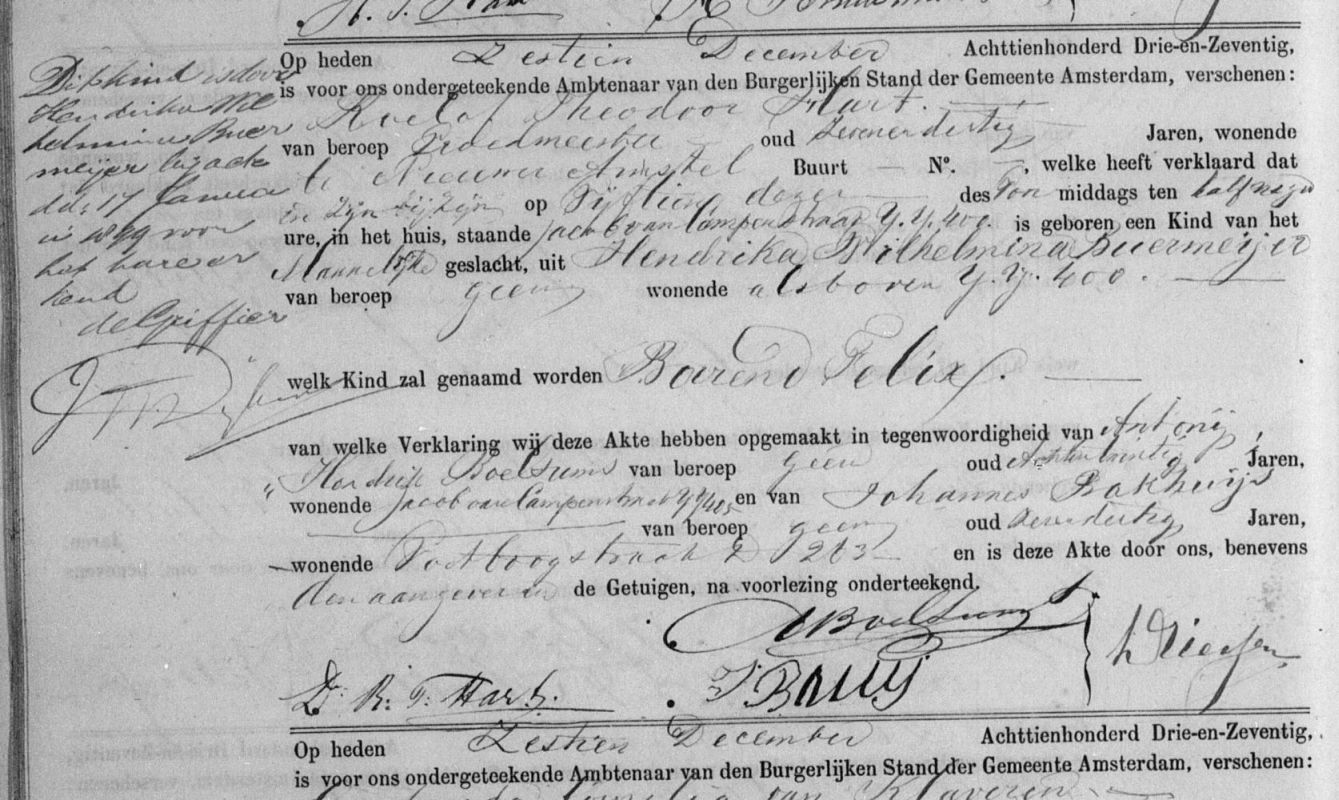 Op heden Zestien December Achttienhonderd Drie-en-Zeventig,
is voor ons ondergeteekende Ambtenaar van den Burgerlijken Stand der Gemeente Amsterdam, verschenen:
Roelof Theodoor Hart.
van beroep Vroedmeester oud Zevenendertig Jaren, wonende
te Nieuwer Amstel Buurt N°. , welke heeft verklaard dat
in zijn bijzijn op Vijftien dezer des Voor middags ten half negen
ure, in het huis, staande Jacob van Campenstraat Y.Y. 400. is geboren een Kind van het
Mannelijke geslacht, uit Hendrika Wilhelmina Buermeijer
van beroep geen wonende als boven Y.Y. 400.
welk Kind zal genaamd worden Barend Felix.
van welke Verklaring wij deze Akte hebben opgemaakt in tegenwoordigheid van Antonij
Hendrik Boelsums van beroep geen oud Achtentwintig Jaren,
wonende Jacob van Campenstraat YY 405 en van Johannes Bakhuijs
van beroep geen oud Jaren,
wonende Voetboogstraat 263 en is deze Akte door ons, benevens
den aangever en de Getuigen, na voorlezing onderteekend.
Dr. R. T. Hart.
Dit kind is door
Hendrika Wil
helmina Buer
meijer bij acte
d.d. 17 Janua
ri voor
het hare er
kend
de Griffier
Op heden Zestien December Achttienhonderd Drie-en-Zeventig,
is voor ons ondergeteekende Ambtenaar van den Burgerlijken Stand der Gemeente Amsterdam, verschenen:
van Klaveren